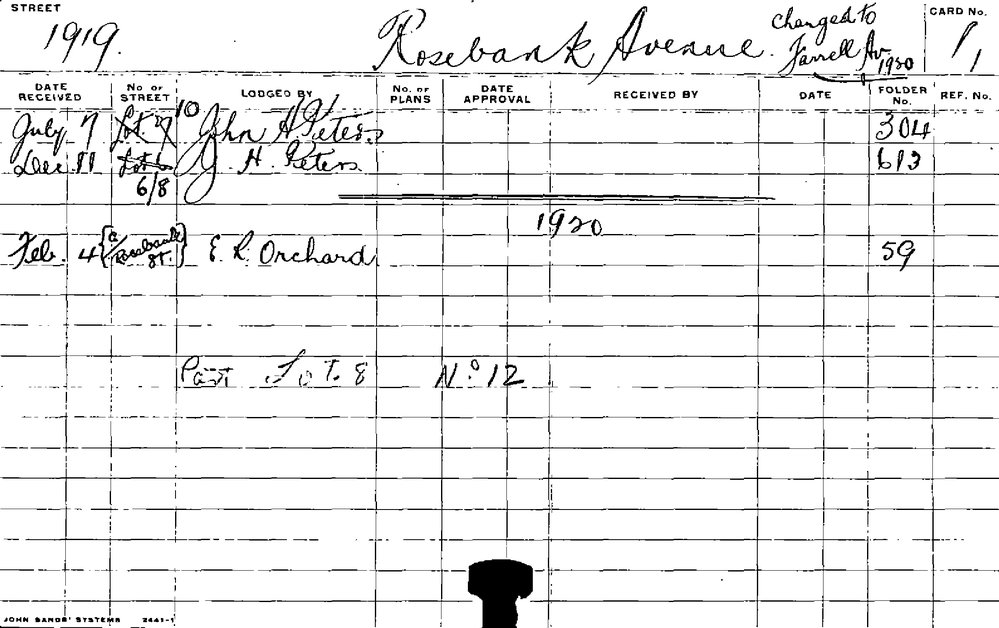 STREET
1919. Rosebank Avenue. changed to Farrell Av. 1920
CARD No. 1,
DATE RECEIVED No. OF STREET LODGED BY No. OF PLANS DATE APPROVAL RECEIVED BY DATE FOLDER No. REF. No.
July 7 Lot 7 10 John H. Peters 304
Dec 11 Lot 6 J. H. Peters 613
6/8
1920
Feb. 4 {c/ Rosebank St.} E. R. Orchard 59
Part Lot 8 No 12
JOHN SANDS' SYSTEMS 2441-1